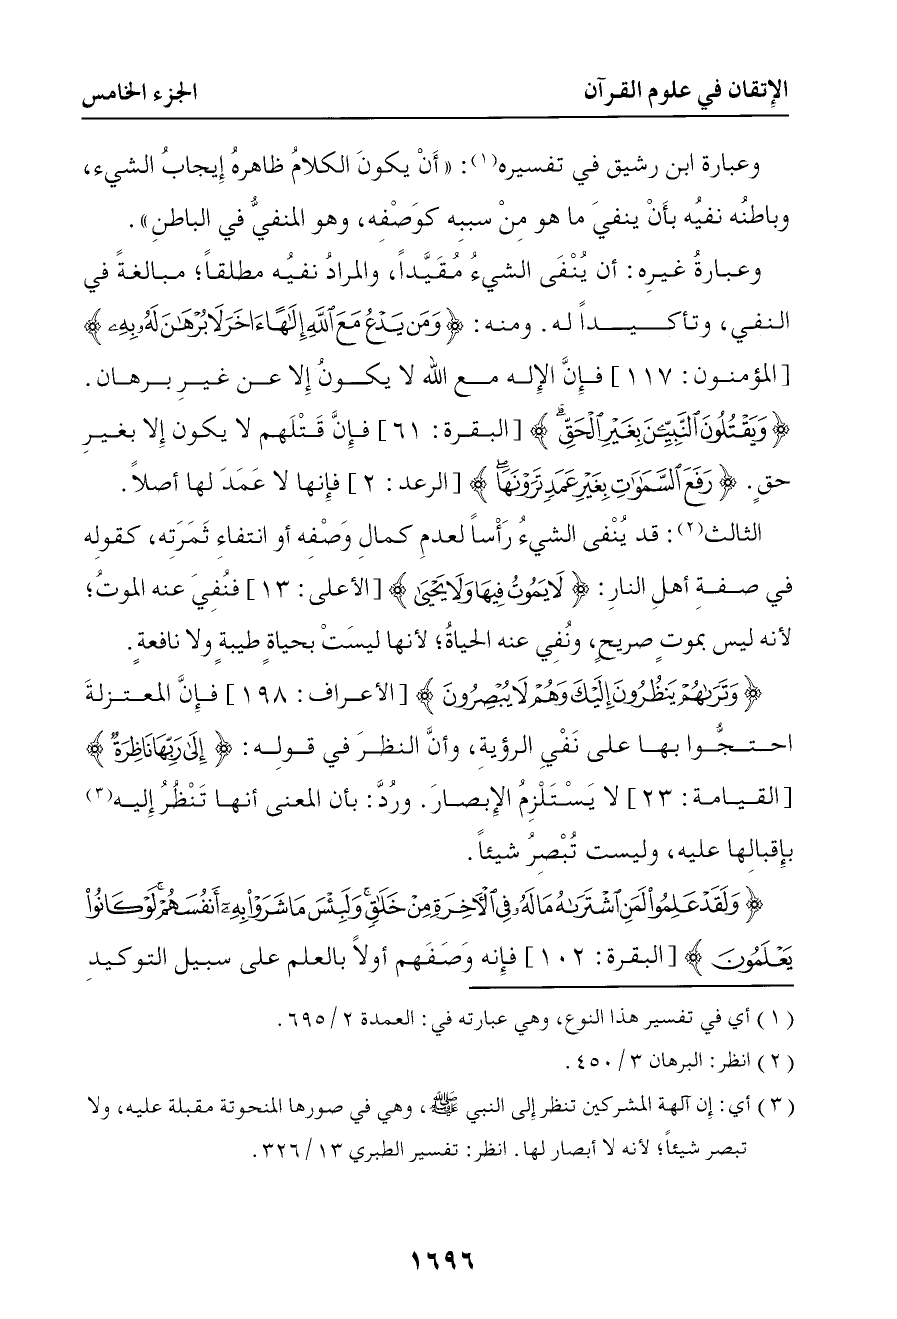 الإتقان في علوم القرآن
الجزء الخامس
وعبارة ابن رشيق في تفسيره(١): «أَنْ يكونَ الكلامُ ظاهرهُ إيجابُ الشيء،
وباطنُه نفيُه بأَنْ ينفيَ ما هو مِنْ سببه كوَصْفِه، وهو المنفيُّ في الباطنِ».
وعبارةُ غيره: أن يُنْفَى الشيءُ مُقَيَّداً، والمرادُ نفيُه مطلقاً؛ مبالغةً في
النفي، وتأكيداً له. ومنه: ﴿وَمَن يَدْعُ مَعَ ٱللَّهِ إِلَٰهًا ءَاخَرَ لَا بُرْهَٰنَ لَهُۥ بِهِۦ﴾
[المؤمنون: ١١٧] فإنَّ الإله مع الله لا يكونُ إلا عن غيرِ برهان.
﴿وَيَقْتُلُونَ ٱلنَّبِيِّـۧنَ بِغَيْرِ ٱلْحَقِّۗ﴾ [البقرة: ٦١] فإنَّ قَتْلَهم لا يكون إلا بغيرِ
حقٍ. ﴿رَفَعَ ٱلسَّمَٰوَٰتِ بِغَيْرِ عَمَدٍ تَرَوْنَهَاۖ﴾ [الرعد: ٢] فإنها لا عَمَدَ لها أصلاً.
الثالث(٢): قد يُنْفى الشيءُ رَأْساً لعدمِ كمالِ وَصْفِه أو انتفاءِ ثَمَرَتِه، كقوله
في صفةِ أهلِ النارِ: ﴿لَا يَمُوتُ فِيهَا وَلَا يَحْيَىٰ﴾ [الأعلى: ١٣] فنُفيَ عنه الموتُ؛
لأنه ليس بموتٍ صريحٍ، ونُفي عنه الحياةُ؛ لأنها ليسَتْ بحياةٍ طيبةٍ ولا نافعةٍ.
﴿وَتَرَىٰهُمْ يَنظُرُونَ إِلَيْكَ وَهُمْ لَا يُبْصِرُونَ﴾ [الأعراف: ١٩٨] فإنَّ المعتزلةَ
احتجُّوا بها على نَفْيِ الرؤية، وأنَّ النظرَ في قوله: ﴿إِلَىٰ رَبِّهَا نَاظِرَةٌ﴾
[القيامة: ٢٣] لا يَسْتَلْزِمُ الإبصارَ. ورُدَّ: بأن المعنى أنها تَنْظُرُ إليه(٣)
بإقبالها عليه، وليست تُبْصِرُ شيئاً.
﴿وَلَقَدْ عَلِمُوا۟ لَمَنِ ٱشْتَرَىٰهُ مَا لَهُۥ فِى ٱلْأَخِرَةِ مِنْ خَلَٰقٍۚ وَلَبِئْسَ مَا شَرَوْا۟ بِهِۦٓ أَنفُسَهُمْۚ لَوْ كَانُوا۟
يَعْلَمُونَ﴾ [البقرة: ١٠٢] فإنه وَصَفَهم أولاً بالعلم على سبيل التوكيدِ
(١) أي في تفسير هذا النوع، وهي عبارته في: العمدة ٢/ ٦٩٥.
(٢) انظر: البرهان ٣/ ٤٥٠.
(٣) أي: إن آلهة المشركين تنظر إلى النبي ﷺ، وهي في صورها المنحوتة مقبلة عليه، ولا
تبصر شيئاً؛ لأنه لا أبصار لها. انظر: تفسير الطبري ١٣/ ٣٢٦.
١٦٩٦